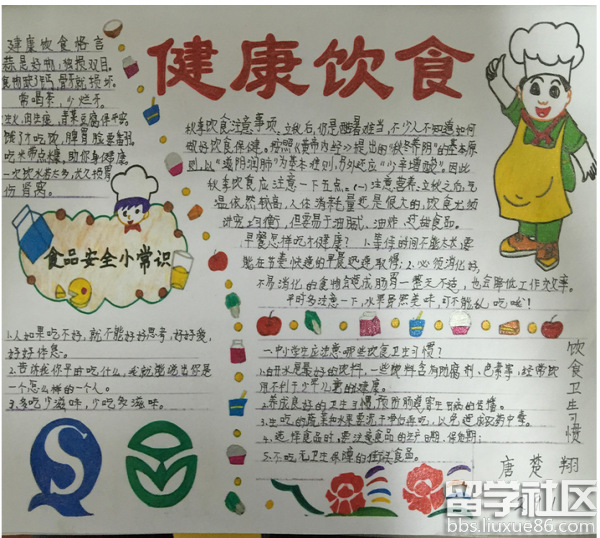 健康饮食
健康饮食格言
蒜是好物,独损双目。
常喝茶,少烂牙。
吃米带点糠,助你身健康。
伤胃离。
食品安全小常识
1.人如果吃不好,就不能好好思考,好好爱,
好好休息。
2.告诉我你平时吃什么,我就能说出你是
一个怎么样的一个人。
3.多吃少滋味,少吃多滋味。
秋季饮食注意事项。立秋后,仍是酷暑难当,不少人不知道如何
做好饮食保健。按照《黄帝内经》提出的“秋冬养阴”的基本原
则,以“滋阴润肺”为基本准则,另外还应“少辛增酸”。因此
秋季饮食应注意一下五点。(一)注意营养。立秋之后,气
温依然较高,人体消耗量还是很大的,饮食尤为
讲究均衡,但要易于油腻、油炸
早餐怎样吃才健康? 1.等待时间不能太长。
能在节奏快速的早晨迅速取得;2.必须消化好,
不易消化的食物会造成肠胃一整天不适,也会降低工作效率。
平时多注意一下,水果虽然美味,可不能乱吃哦!
一.中小学生应注意哪些饮食卫生习惯?
1.白开水是最好的饮料,一些饮料含有防腐剂、色素等,经常饮
用不利于少年儿童的健康。
2.养成良好的卫生习惯,预防肠道寄生虫病的传播。
3.生吃的蔬菜和水果要洗干净后再吃,以免造成农药中毒。
4.选择食品时,要注意食品的生产日期、保质期;
5.不吃无卫生保障的街头食品。
饮食卫生习惯
唐楚翔
留学社区
bbs.liuxue86.com